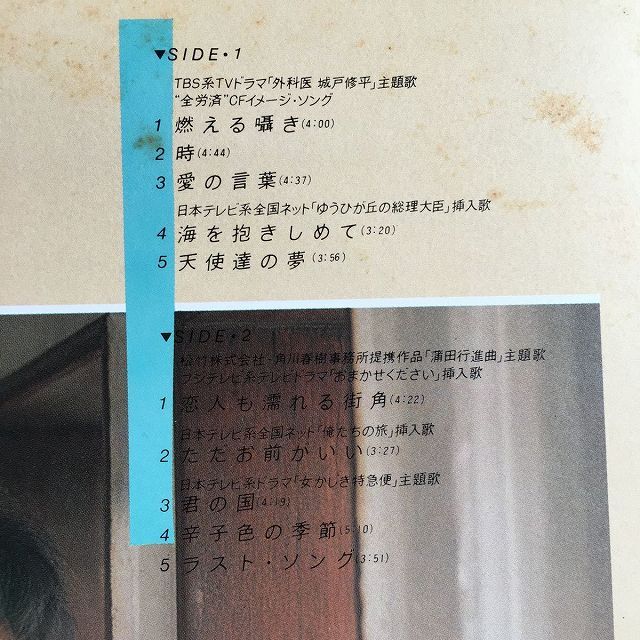 ▼SIDE・1
TBS系TVドラマ「外科医 城戸修平」主題歌
“全労済”CFイメージ・ソング
1 燃える囁き(4:00)
2 時(4:44)
3 愛の言葉(4:37)
日本テレビ系全国ネット「ゆうひが丘の総理大臣」挿入歌
4 海を抱きしめて(3:20)
5 天使達の夢(3:56)
▼SIDE・2
松竹株式会社・角川春樹事務所提携作品「蒲田行進曲」主題歌
フジテレビ系テレビドラマ「おまかせください」挿入歌
1 恋人も濡れる街角(4:22)
日本テレビ系全国ネット「俺たちの旅」挿入歌
2 ただお前がいい(3:27)
日本テレビ系ドラマ「女かじき特急便」主題歌
3 君の国(4:19)
4 辛子色の季節(5:10)
5 ラスト・ソング(3:51)